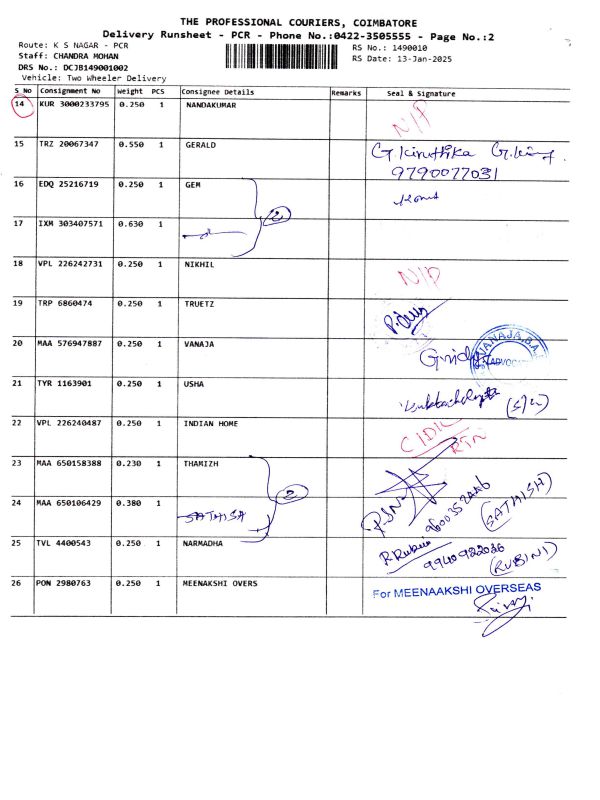 THE PROFESSIONAL COURIERS, COIMBATORE
Delivery Runsheet - PCR - Phone No.:0422-3505555 - Page No.:2
Route: K S NAGAR - PCR
RS No.: 1490010
Staff: CHANDRA MOHAN
RS Date: 13-Jan-2025
DRS No.: DCJB149001002
Vehicle: Two Wheeler Delivery
S No Consignment No Weight PCS Consignee Details Remarks Seal & Signature
14 KUR 3000233795 0.250 1 NANDAKUMAR N/P
15 TRZ 20067347 0.550 1 GERALD G.Kiruthika
9790077031
16 EDQ 25216719 0.250 1 GEM
17 IXM 303407571 0.630 1 2
18 VPL 226242731 0.250 1 NIKHIL N/P
19 TRP 6860474 0.250 1 TRUETZ
20 MAA 576947887 0.250 1 VANAJA
21 TYR 1163901 0.250 1 USHA (S/W)
22 VPL 226240487 0.250 1 INDIAN HOME
RTN
23 MAA 650158388 0.230 1 THAMIZH
24 MAA 650106429 0.380 1 SATHISH 2 (SATHISH)
25 TVL 4400543 0.250 1 NARMADHA R Rubini
9940922026
(RUBINI)
26 PON 2980763 0.250 1 MEENAKSHI OVERS For MEENAAKSHI OVERSEAS